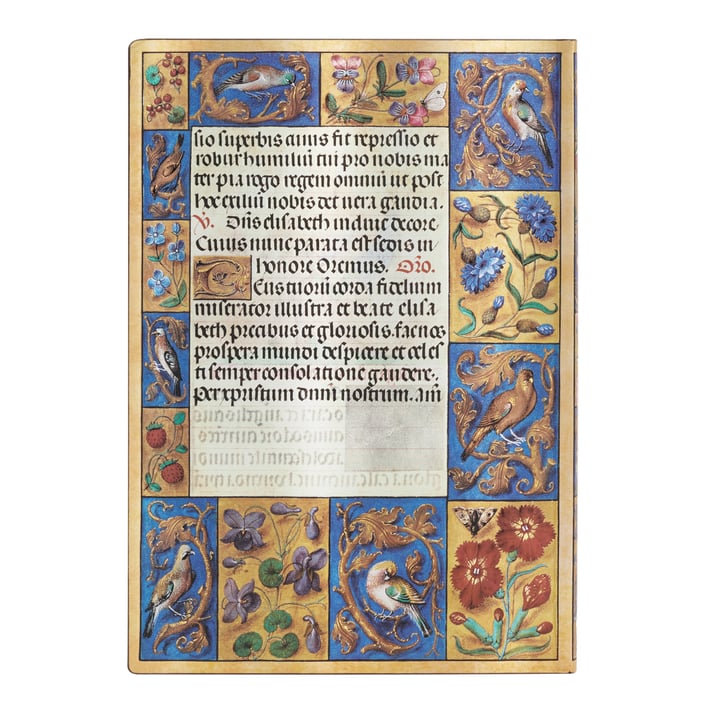 sio superbis cuius fit repressio et
robur humiliū tui pro nobis ma
ter pia rogo regem omniū ut post
hoc exiliū nobis det uera gaudia.
V. Dūs elisabeth indue decore.
Cuius nunc parata est sedis in
honore Oremus. Oro.
Eus tuorū corda fidelium
miserator illustra et beate elisa
beth precibus et gloriosis fac nos
prospera mundi despicere et celes
ti semper consolatione gaudere.
Per xpistum dnm̄ nostrum. am̄